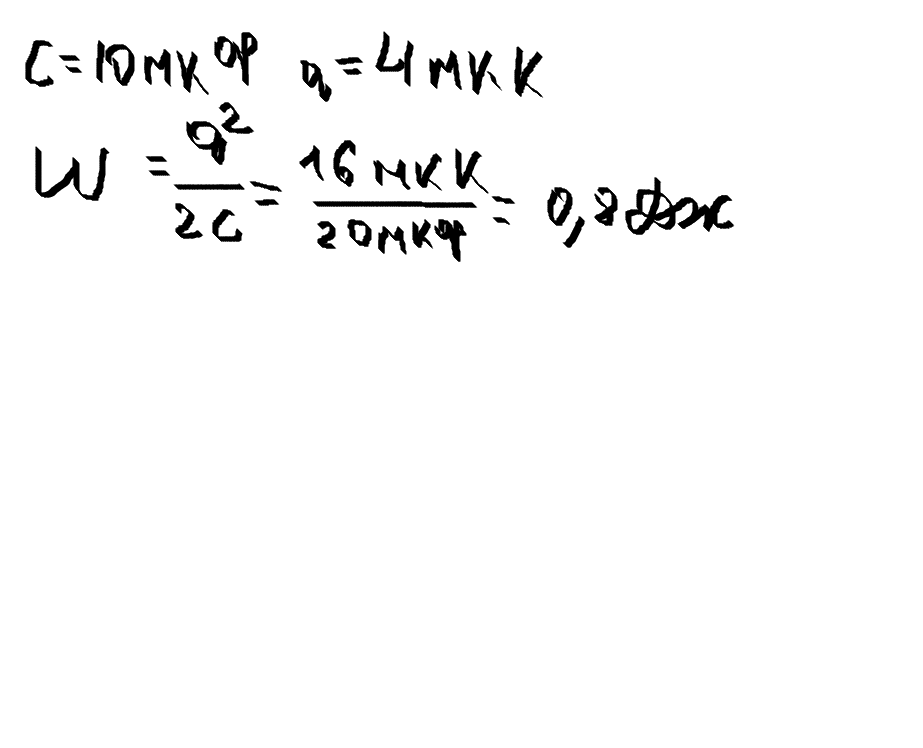 C = 10 мкФ q = 4 мк К
W = q²/2C = 16 мк К/20 мкФ = 0,8 Дж